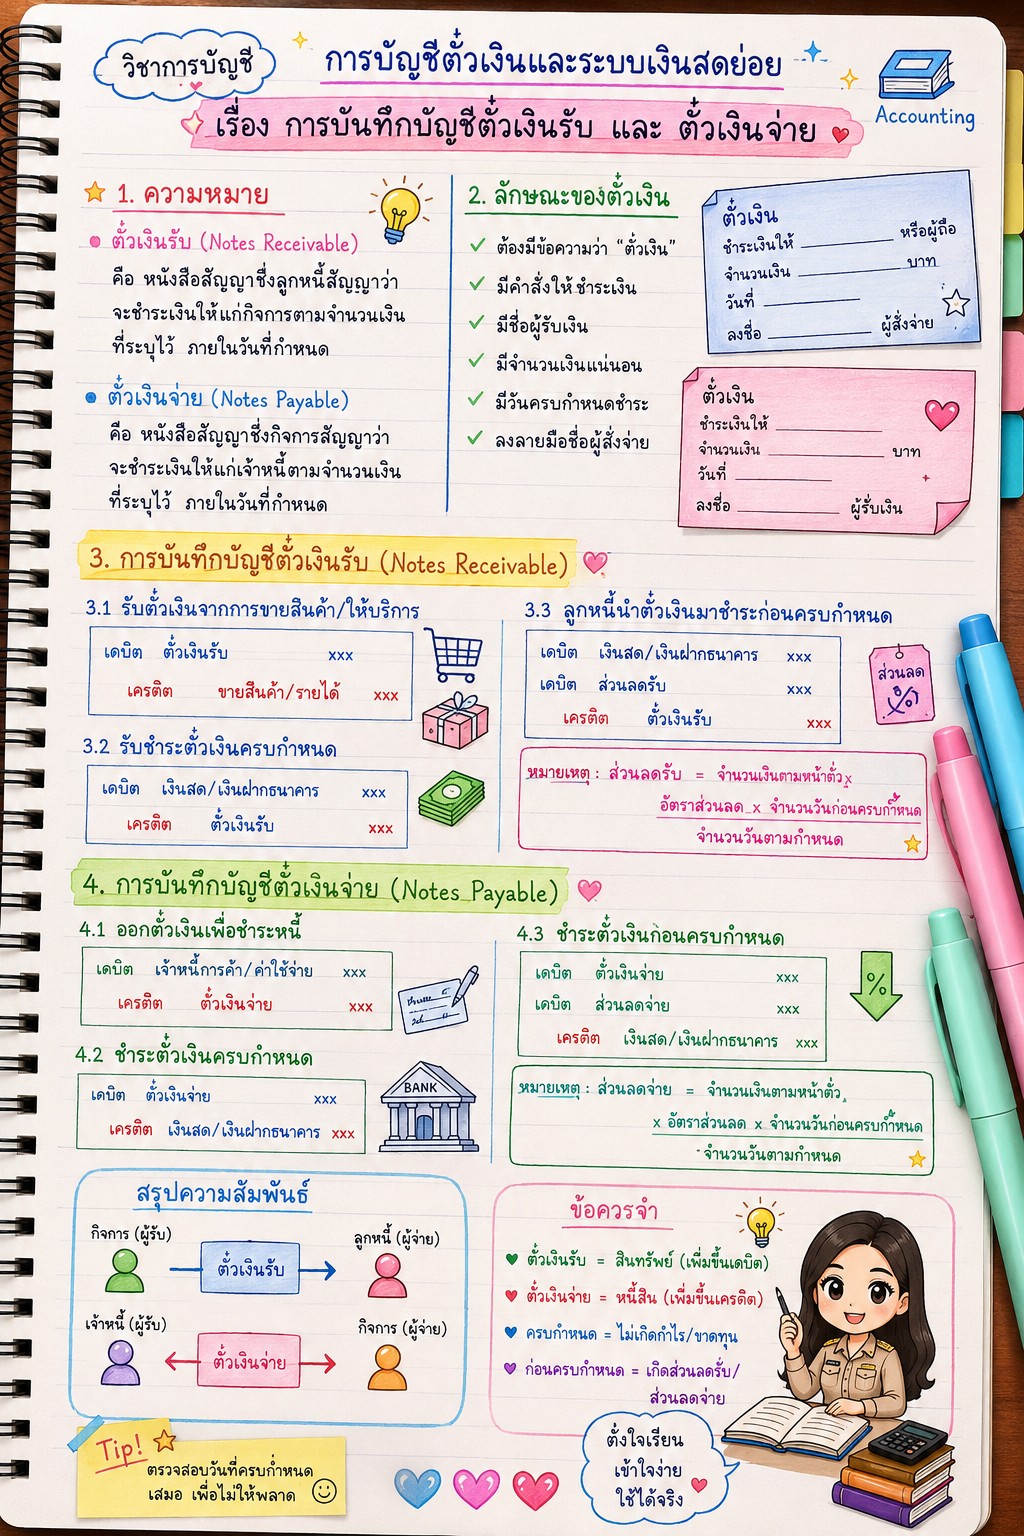 วิชาการบัญชี
การบัญชีตั๋วเงินและระบบเงินสดย่อย
Accounting
เรื่อง การบันทึกบัญชีตั๋วเงินรับ และ ตั๋วเงินจ่าย
1. ความหมาย
ตั๋วเงินรับ (Notes Receivable)
คือ หนังสือสัญญาซึ่งลูกหนี้สัญญาว่า
จะชำระเงินให้แก่กิจการตามจำนวนเงิน
ที่ระบุไว้ ภายในวันที่กำหนด
ตั๋วเงินจ่าย (Notes Payable)
คือ หนังสือสัญญาซึ่งกิจการสัญญาว่า
จะชำระเงินให้แก่เจ้าหนี้ตามจำนวนเงิน
ที่ระบุไว้ ภายในวันที่กำหนด
2. ลักษณะของตั๋วเงิน
ต้องมีข้อความว่า "ตั๋วเงิน"
มีคำสั่งให้ชำระเงิน
มีชื่อผู้รับเงิน
มีจำนวนเงินแน่นอน
มีวันครบกำหนดชำระ
ลงลายมือชื่อผู้สั่งจ่าย
ตั๋วเงิน
ชำระเงินให้ ________ หรือผู้ถือ
จำนวนเงิน ________ บาท
วันที่ ________
ลงชื่อ ________ ผู้สั่งจ่าย
ตั๋วเงิน
ชำระเงินให้ ________
จำนวนเงิน ________ บาท
วันที่ ________
ลงชื่อ ________ ผู้รับเงิน
3. การบันทึกบัญชีตั๋วเงินรับ (Notes Receivable)
3.1 รับตั๋วเงินจากการขายสินค้า/ให้บริการ
เดบิต ตั๋วเงินรับ xxx
เครดิต ขายสินค้า/รายได้ xxx
3.2 รับชำระตั๋วเงินครบกำหนด
เดบิต เงินสด/เงินฝากธนาคาร xxx
เครดิต ตั๋วเงินรับ xxx
3.3 ลูกหนี้นำตั๋วเงินมาชำระก่อนครบกำหนด
เดบิต เงินสด/เงินฝากธนาคาร xxx
เดบิต ส่วนลดรับ xxx
เครดิต ตั๋วเงินรับ xxx
ส่วนลด
%
หมายเหตุ : ส่วนลดรับ = จำนวนเงินตามหน้าตั๋ว x
อัตราส่วนลด x จำนวนวันก่อนครบกำหนด
จำนวนวันตามกำหนด
4. การบันทึกบัญชีตั๋วเงินจ่าย (Notes Payable)
4.1 ออกตั๋วเงินเพื่อชำระหนี้
เดบิต เจ้าหนี้การค้า/ค่าใช้จ่าย xxx
เครดิต ตั๋วเงินจ่าย xxx
4.2 ชำระตั๋วเงินครบกำหนด
เดบิต ตั๋วเงินจ่าย xxx
เครดิต เงินสด/เงินฝากธนาคาร xxx
BANK
4.3 ชำระตั๋วเงินก่อนครบกำหนด
เดบิต ตั๋วเงินจ่าย xxx
เดบิต ส่วนลดจ่าย xxx
เครดิต เงินสด/เงินฝากธนาคาร xxx
%
หมายเหตุ : ส่วนลดจ่าย = จำนวนเงินตามหน้าตั๋ว
x อัตราส่วนลด x จำนวนวันก่อนครบกำหนด
จำนวนวันตามกำหนด
สรุปความสัมพันธ์
กิจการ (ผู้รับ) ลูกหนี้ (ผู้จ่าย)
ตั๋วเงินรับ
เจ้าหนี้ (ผู้รับ) กิจการ (ผู้จ่าย)
ตั๋วเงินจ่าย
ข้อควรจำ
ตั๋วเงินรับ = สินทรัพย์ (เพิ่มขึ้นเดบิต)
ตั๋วเงินจ่าย = หนี้สิน (เพิ่มขึ้นเครดิต)
ครบกำหนด = ไม่เกิดกำไร/ขาดทุน
ก่อนครบกำหนด = เกิดส่วนลดรับ/
ส่วนลดจ่าย
Tip!
ตรวจสอบวันที่ครบกำหนด
เสมอ เพื่อไม่ให้พลาด
ตั้งใจเรียน
เข้าใจง่าย
ใช้ได้จริง